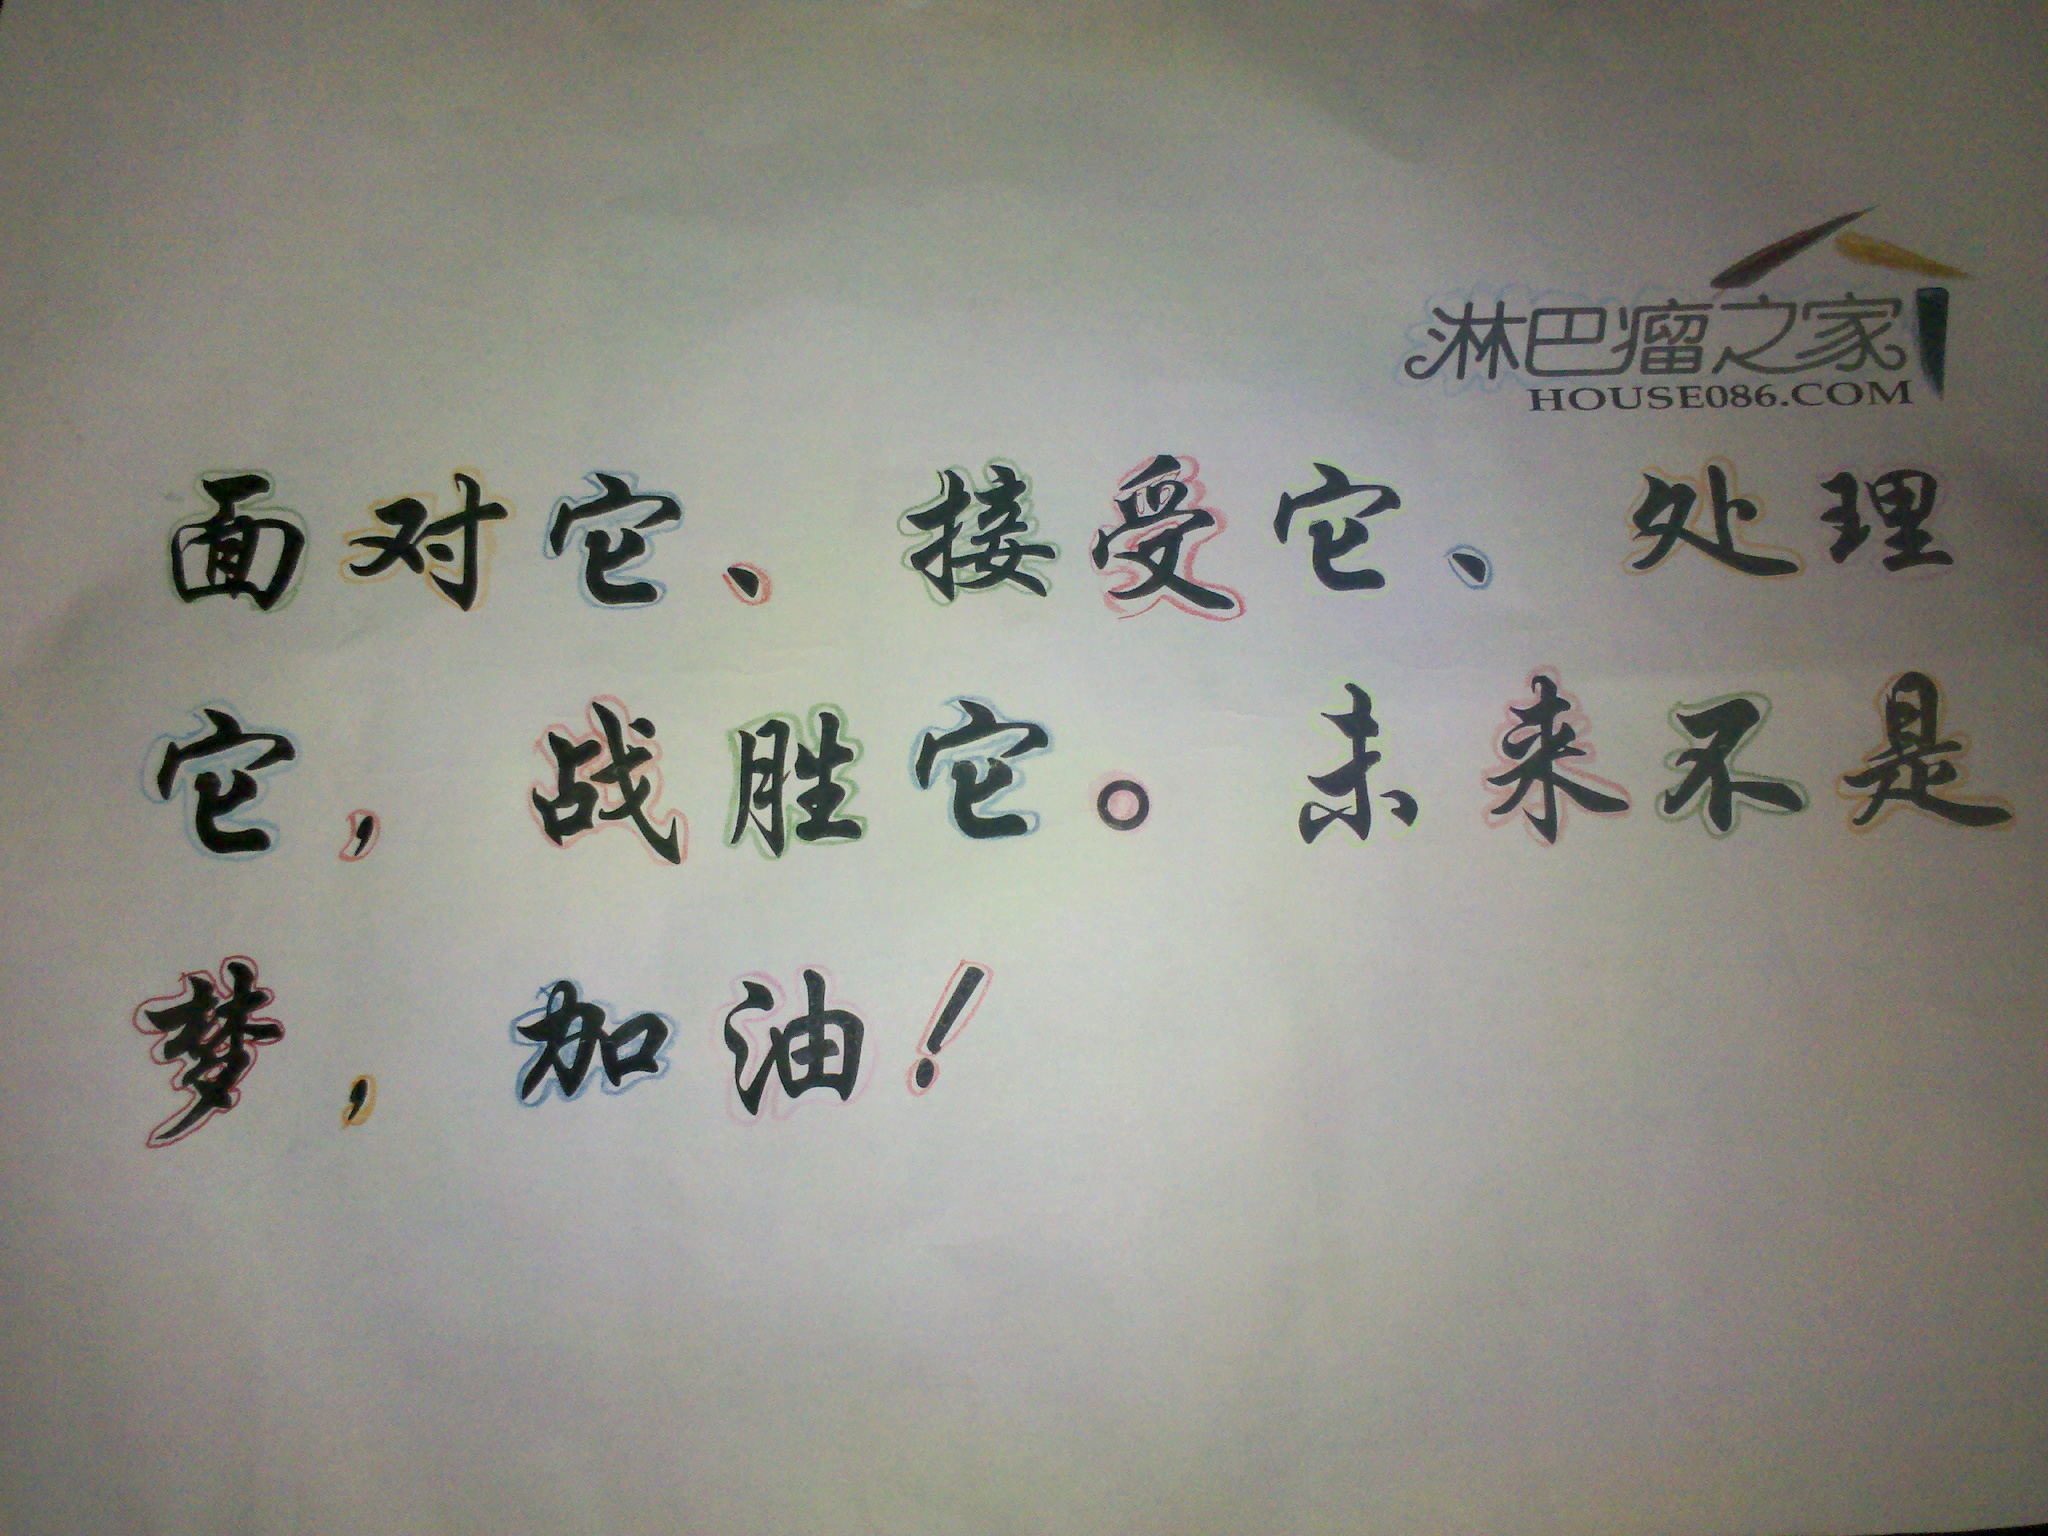 淋巴瘤之家
HOUSE086.COM
面对它、接受它、处理
它，战胜它。未来不是
梦，加油！